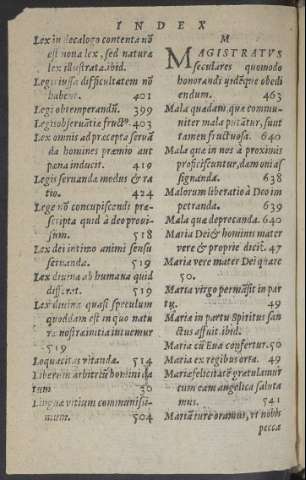 INDEX
Lex in decalogo contenta nõ
est noua lex, sed naturæ
lex illustrata. ibid.
Legis iussa difficultatem nõ
habent. 401
Legi obtemperandũ. 399
Legis obseruãtiæ fructꝰ. 403
Lex omnis ad præcepta seruã
da homines præmio aut
pœna inducit. 419
Legis seruanda modus & ra
tio. 424
Lege nõ concupiscendi præ-
scripta quid à deo proui-
sum. 518
Lex dei intimo animi sensu
seruanda. 519
Lex diuina ab humana quid
differat. 519
Lex diuina quasi speculum
quoddam est in quo natu
ræ nostræ initia intuemur
519
Loquacitas vitanda. 514
Liberum arbitriũ homini da
tum 50
Linguæ vitium communissi-
mum. 504
M
MAGISTRATVS
seculares quomodo
honorandi ijdẽque obedi
endum. 463
Mala quædam, quæ commu-
niter mala putãtur, sunt
tamen fructuosa. 640
Mala quæ in nos à proximis
proficiscuntur, dæmoni as
signanda. 638
Malorum liberatio à Deo im
petranda. 639
Mala quæ deprecanda. 640
Maria Dei & hominis mater
verè & propriè dicit̃. 47
Maria vere mater Dei quare
50.
Maria virgo permãsit in par
tu. 49
Mariæ in partu Spiritus san
ctus affuit. ibid.
Maria cũ Eua confertur. 50
Maria ex regibus orta. 49
Mariæ felicitatẽ gratulamur
cum eam angelica saluta
mus. 541
Mariã iure oramus, vt nobis
pecca